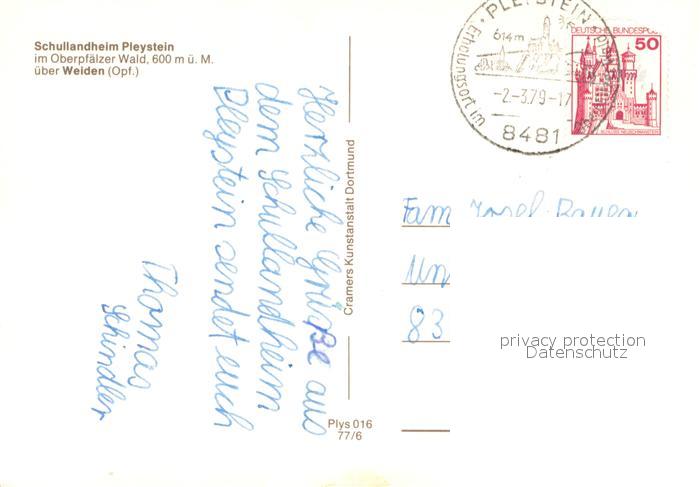 Schullandheim Pleystein
im Oberpfälzer Wald, 600 m ü. M.
über Weiden (Opf.)
Herzliche Grüße aus
dem Schullandheim
Pleystein sendet euch
Thomas
Schindler
Cramers Kunstanstalt Dortmund
Plys 016
77/6
PLEYSTEIN
614m
-2.-3.79-17
Erholungsort im
8481
DEUTSCHE BUNDESPOST
50
SCHLOSS NEUSCHWANSTEIN
Fam
Un
83
privacy protection
Datenschutz